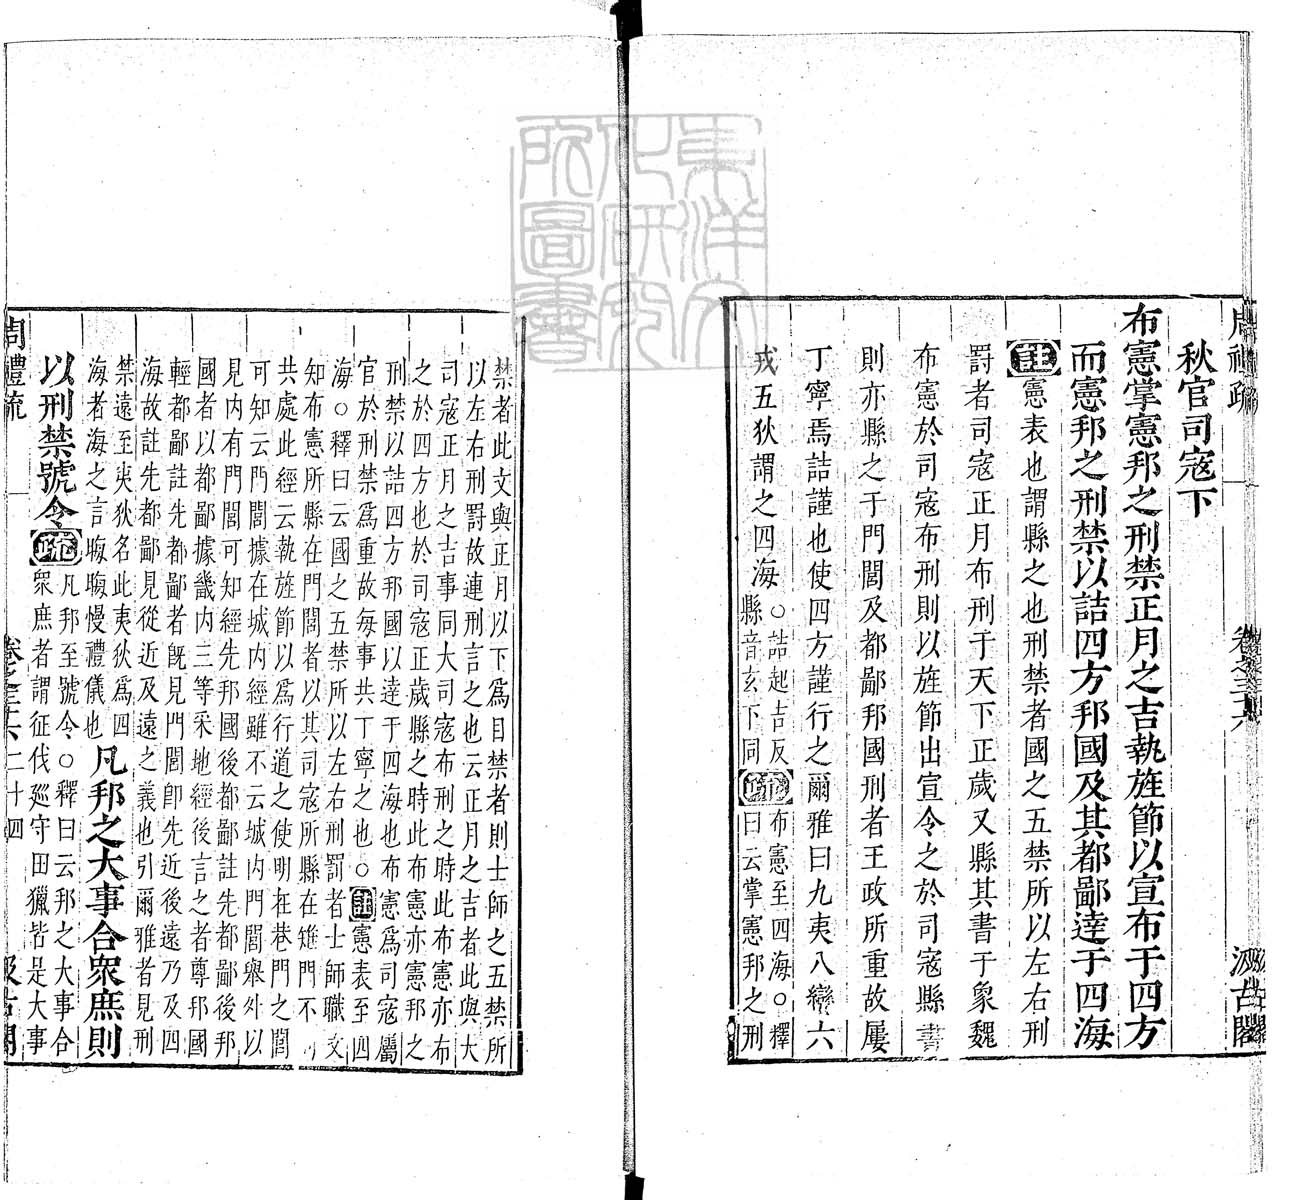 秋官司寇下
布憲掌憲邦之刑禁正月之吉執旌節以宣布于四方
而憲邦之刑禁以詰四方邦國及其都鄙達于四海
註憲表也謂縣之也刑禁者國之五禁所以左右刑
罸者司寇正月布刑于天下正歲又縣其書于象魏
布憲於司寇布刑則以旌節出宣令之於司寇縣書
則亦縣之于門閭及都鄙邦國刑者王政所重故屢
丁寧焉詰謹也使四方謹行之爾雅曰九夷八蠻六
戎五狄謂之四海
○詰起吉反
縣音玄下同
疏
布憲至四海○釋
曰云掌憲邦之刑
禁者此文與正月以下爲目禁者則士師之五禁所
以左右刑罸故連刑言之也云正月之吉者此與大
司寇正月之吉事同大司寇布刑之時此布憲亦布
之於四方也於司寇正歲縣之時此布憲亦憲邦之
刑禁以詰四方邦國以達于四海也布憲爲司寇屬
官於刑禁爲重故每事共丁寧之也○註憲表至四
海○釋曰云國之五禁所以左右刑罸者士師職文
知布憲所縣在門閭者以其司寇所縣在雉門不
共處此經云執旌節以爲行道之使明在巷門之閭
可知云門閭據在城內經雖不云城內門閭舉外以
見內有門閭可知經先邦國後都鄙註先都鄙後邦
國者以都鄙據畿內三等采地經後言之者尊邦國
輕都鄙註先都鄙者旣見門閭卽先近後遠乃及四
海故註先都鄙見從近及遠之義也引爾雅者見刑
禁遠至夷狄名此夷狄爲四
海者海之言晦晦慢禮儀也
凡邦之大事合衆庶則
以刑禁號令
疏
凡邦至號令○釋曰云邦之大事合
衆庶者謂征伐廵守田獵皆是大事
周禮疏
卷之三十六
汲古閣
周禮疏
一
卷之三十六
二十四
汲古閣
東洋文
化研究
所圖書